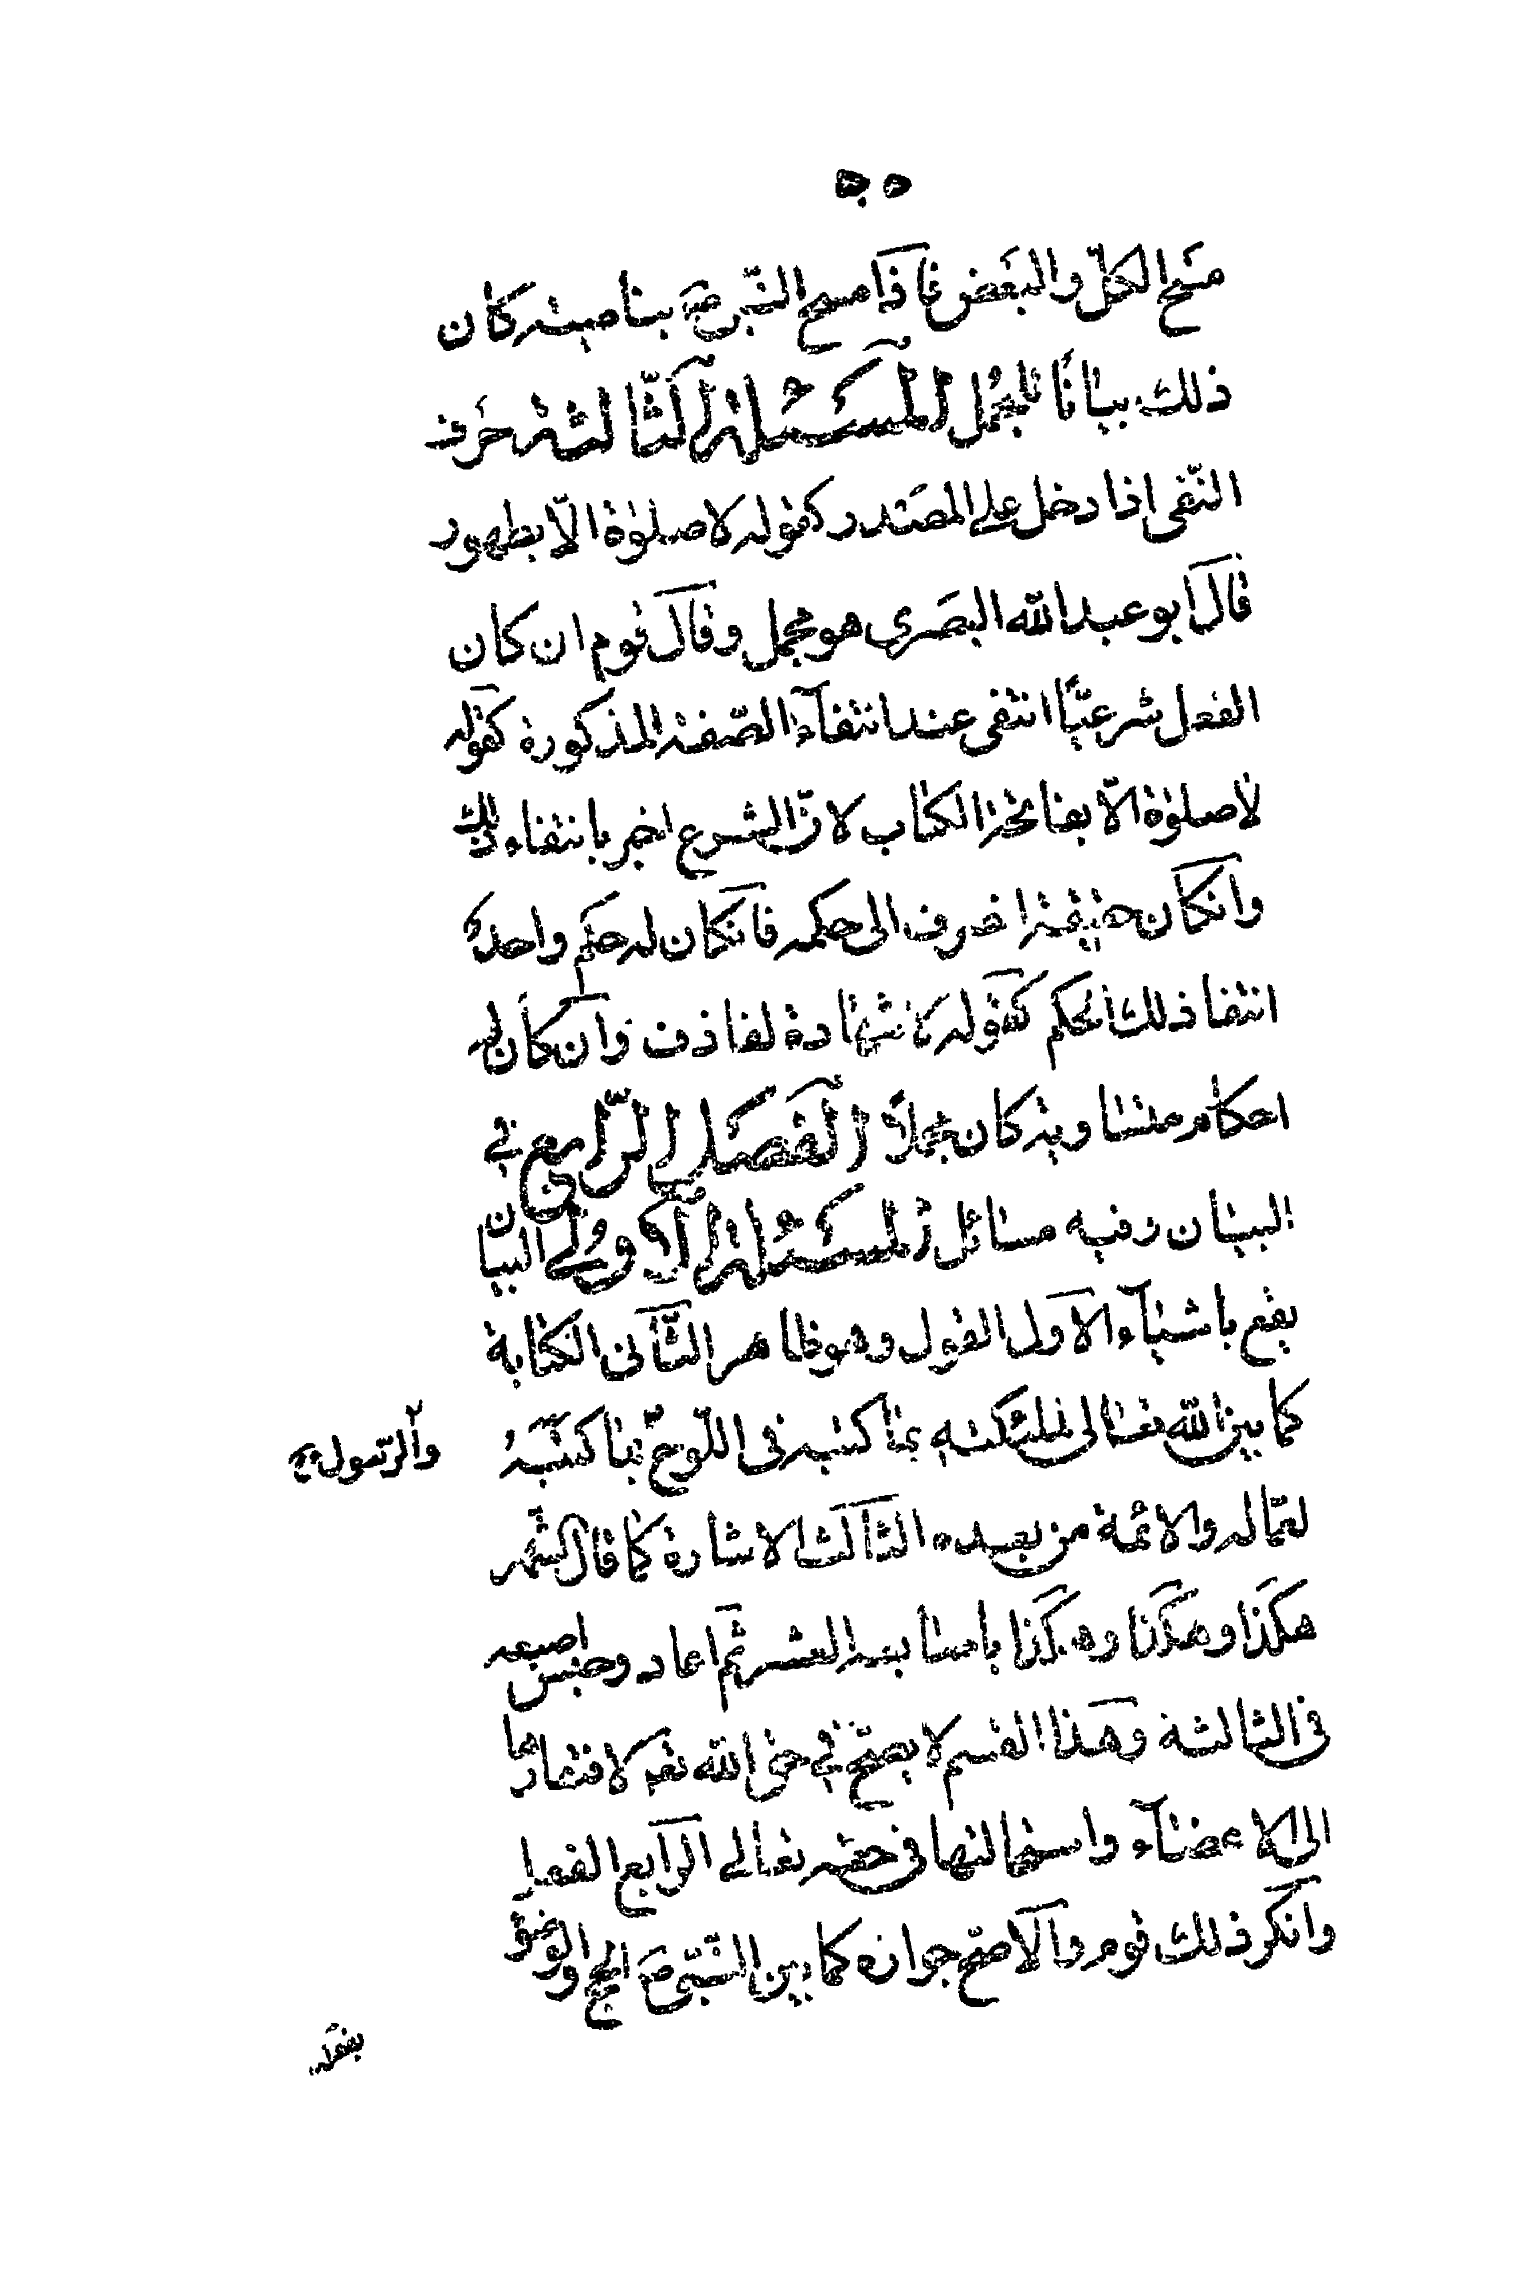 مسح الكلّ والبعض فاذا مسح النّبى صۤ بناصيته كان
ذلك بيانا للمجمل المسئلة الثّالثة حرف
النّفى اذا دخل على المصدر كقوله لا صلوٰة الّا بطهور
قال ابو عبد الله البصرى هو مجمل وقال قوم ان كان
الفعل شرعيّا انتفى عند انتفاء الصّفة المذكورة كقوله
لا صلوٰة الّا بفاتحة الكتاب لانّ الشرع اخبر بانتفاء ذلك
وانكان حقيقة صرف الى حكمه فانكان له حكم واحد
انتفا ذلك الحكم كقوله لا شهادة لقاذف وان كان له
احكام متساوية كان مجملا الفصل الرّابع في
البيان وفيه مسائل المسئلة الاولى البيان
يقع باشياء الاول القول وهو ظاهر الثّانى الكتابة
كما بين الله تعالى لملئكته بما كتبه فى اللّوح بما كتبه
والرّسول
لعمّاله والائمة من بعده الثالث الاشارة كما قال الشهر
هكذا وهكذا وهكذا باصابعه العشر ثم اعاد وحبس اصبعه
فى الثالثة وهذا القسم لا يصحّ في حق الله تعۤ لافتقارها
الى الاعضاء واستحالتها فى حقه تعالى الرابع الفعل
وانكر ذلك قوم والاصحّ جوازه كما بين النّبىّ صۤ الحج والوضوء
بفعله